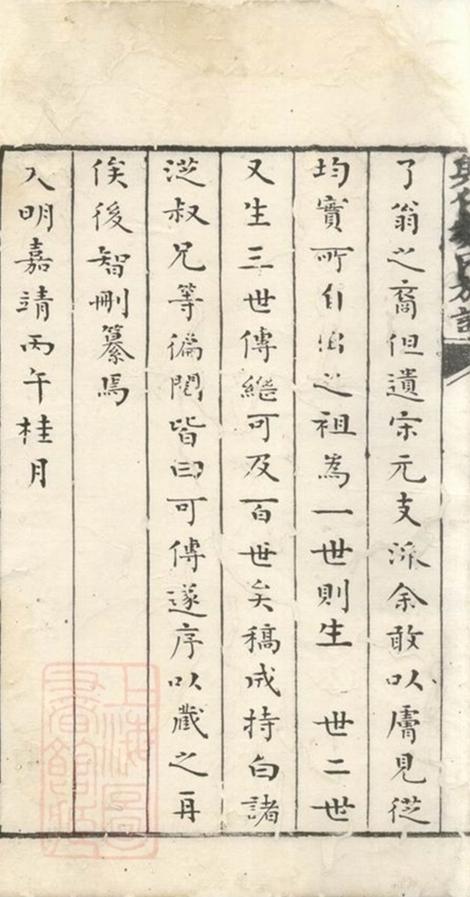 了翁之裔但遺宋元支派余敢以膚見從
均實所自出之祖為一世則生　世二世
又生三世傳繼可及百世矣稿成持白諸
從叔兄等徧閱皆曰可傳遂序以藏之再
俟後智刪纂焉
大明嘉靖丙午桂月
上海圖書館藏